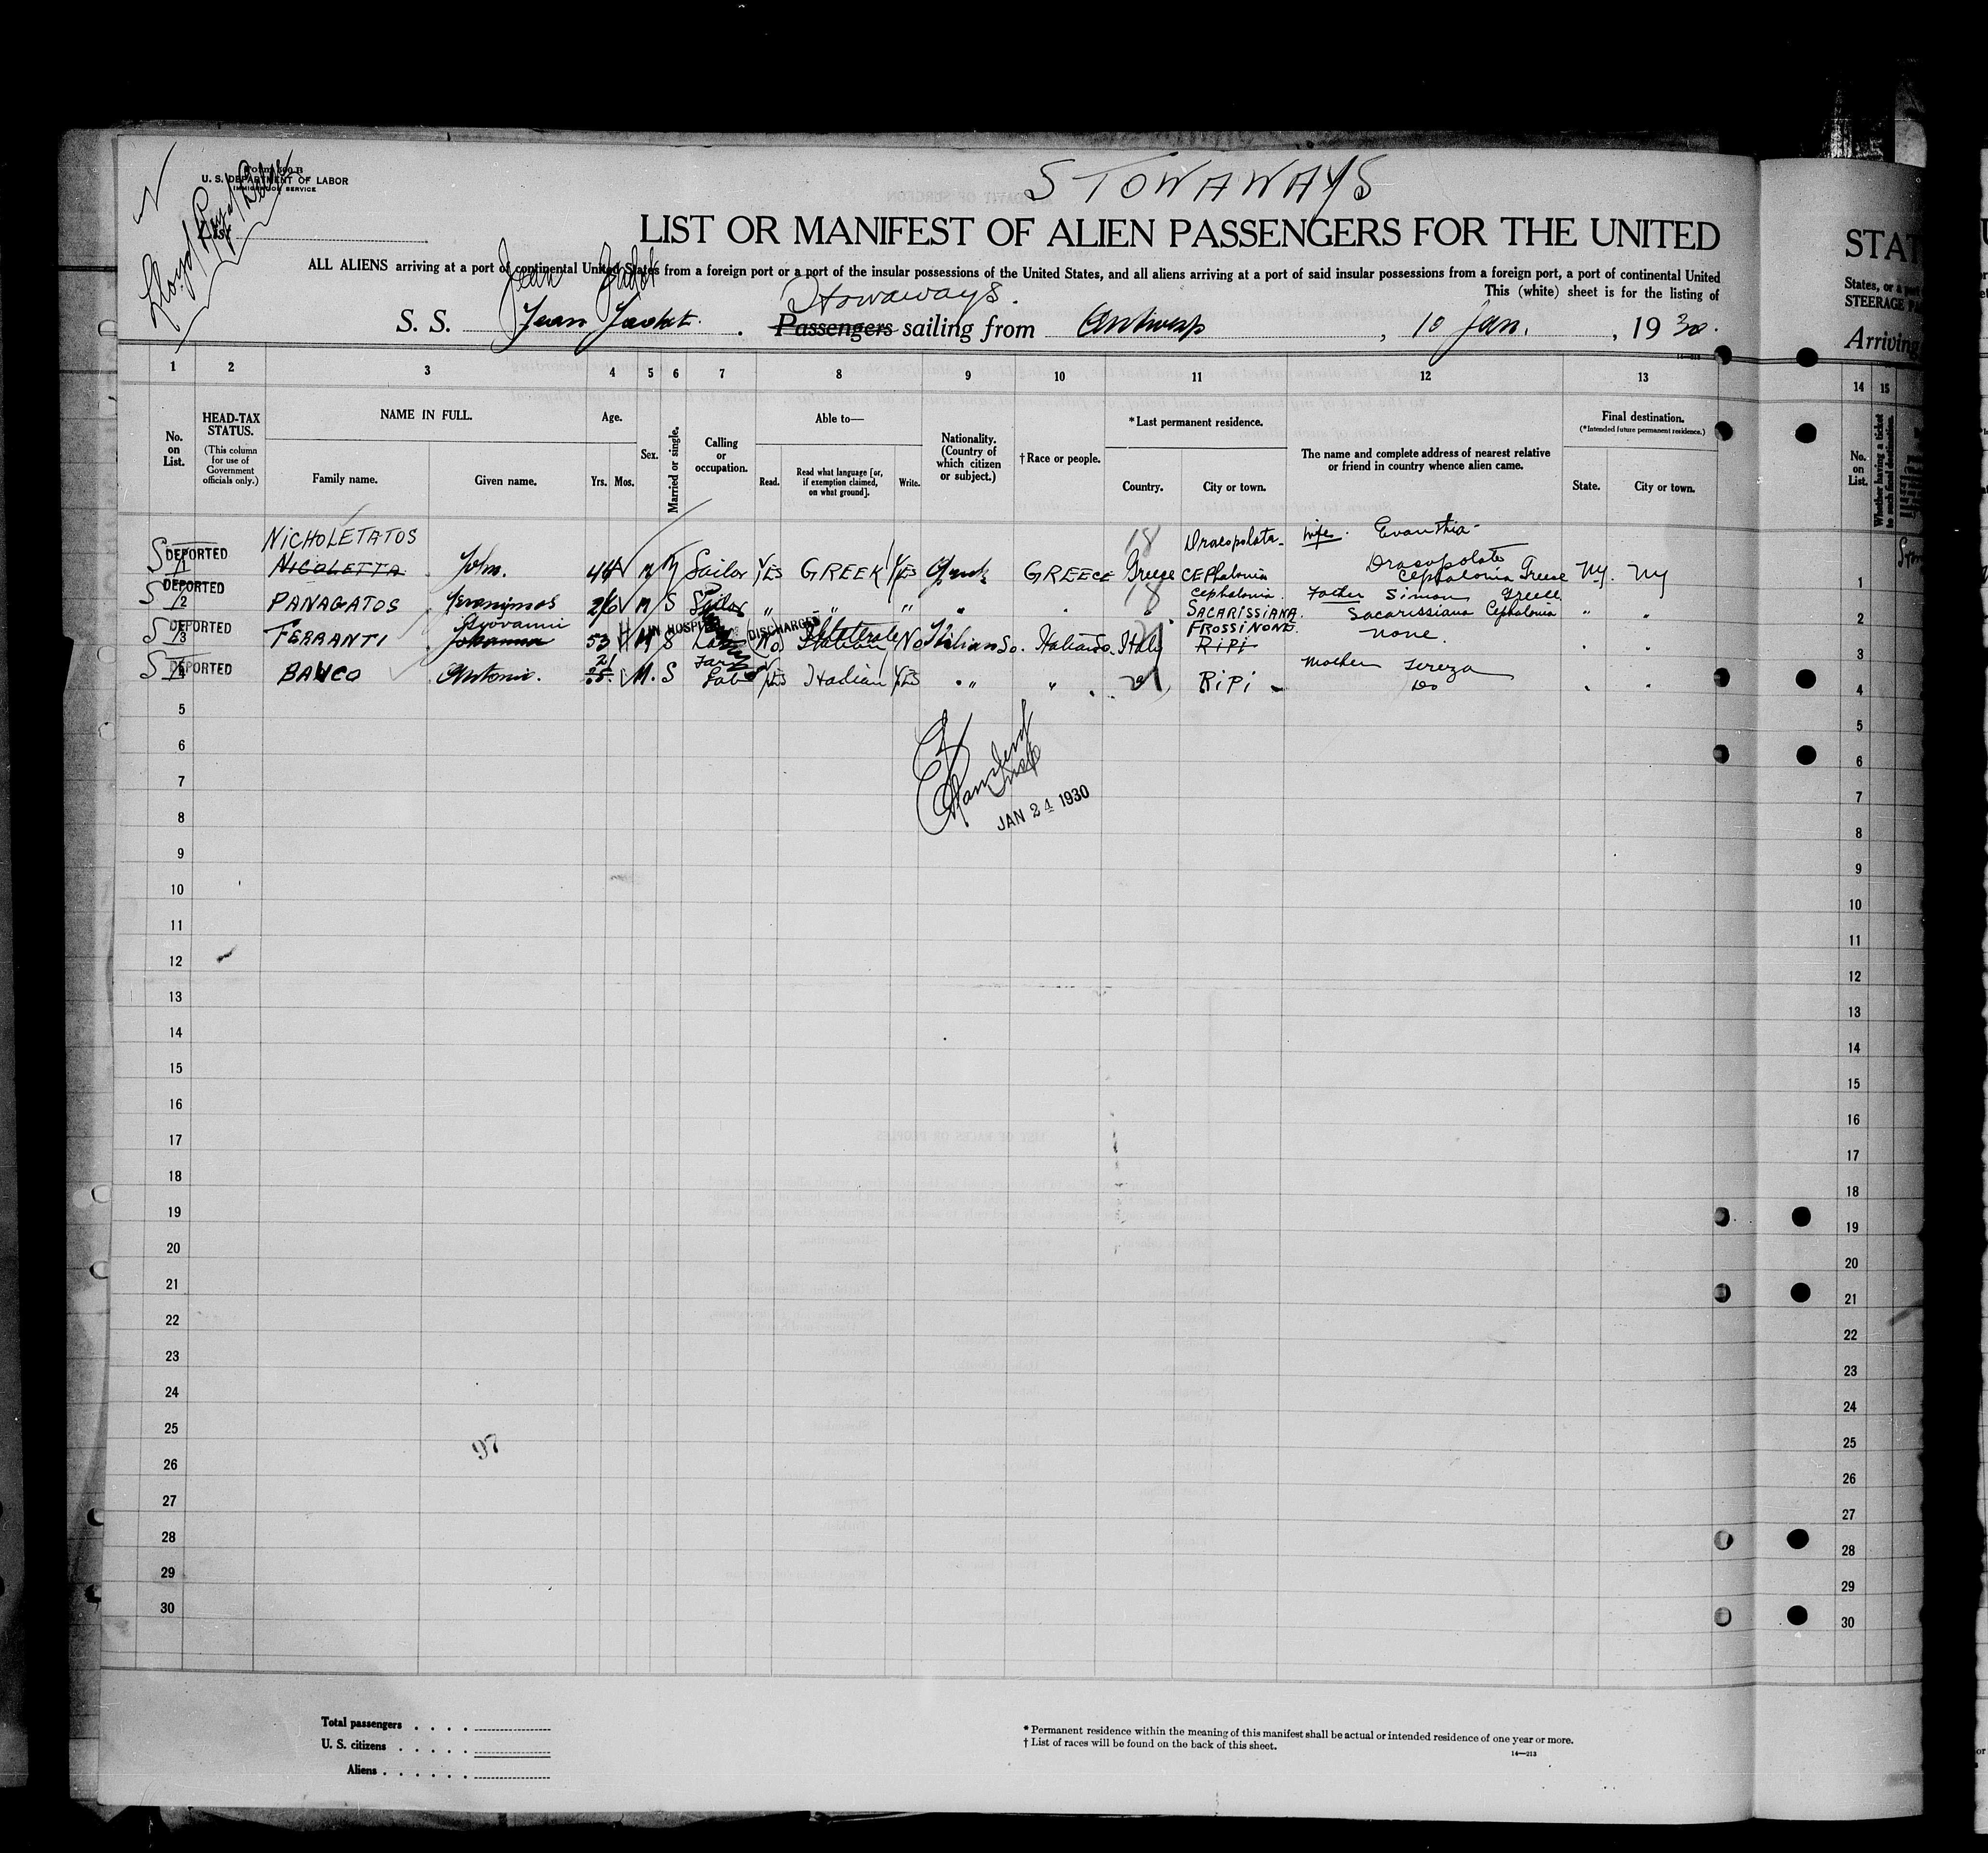 STOWAWAYS
Form 500 B
U. S. DEPARTMENT OF LABOR
IMMIGRATION SERVICE
Lloyd Royal Belge
List
LIST OR MANIFEST OF ALIEN PASSENGERS FOR THE UNITED
STAT
ALL ALIENS arriving at a port of continental United States from a foreign port or a port of the insular possessions of the United States, and all aliens arriving at a port of said insular possessions from a foreign port, a port of continental United
States, or a port
This (white) sheet is for the listing of
STEERAGE PA
Jean Jadot Stowaways.
S. S. Jean Jadot. Passengers sailing from Antwerp, 10 Jan., 19 30.
Arriving
14—213
1 2 3 4 5 6 7 8 9 10 11 12 13 14 15
No. on List.
HEAD-TAX STATUS.
(This column for use of Government officials only.)
NAME IN FULL.
Family name. Given name.
Age.
Yrs. Mos.
Sex.
Married or single.
Calling or occupation.
Able to—
Read. Read what language [or, if exemption claimed, on what ground]. Write.
Nationality. (Country of which citizen or subject.)
†Race or people.
*Last permanent residence.
Country. City or town.
The name and complete address of nearest relative or friend in country whence alien came.
Final destination.
(*Intended future permanent residence.)
State. City or town.
No. on List.
Whether having a ticket to such final destination.
NICHOLETATOS 18 Dracopolata wife. Evanthia
S DEPORTED 1 NICOLETTA John. 44 M M Sailor YES GREEK YES Greek GREECE Greece CEPhalonia Dracopolato Cephalonia Greece NY. NY 1
S DEPORTED 2 PANAGATOS Jeronimos 26 M S Sailor " " " 18 Cephalonia. SACARISSIANA. Father Simon Greece Sacarissiana Cephalonia " " 2
Giovanni IN HOSPITAL DISCHARGED FROSSINONE.
S DEPORTED 3 FERRANTI Johanna 53 M S No Illiterate Italian No Italian So. Italian So. Italy RiPi none. 3
S DEPORTED 4 BAUCO Antonio. 21 M. S Lab YES Italian YES " " 21 RiPi Mother Tereza Do 4
JAN 24 1930
5 5
6 6
7 7
8 8
9 9
10 10
11 11
12 12
13 13
14 14
15 15
16 16
17 17
18 18
19 19
20 20
21 21
22 22
23 23
24 24
25 25
97
26 26
27 27
28 28
29 29
30 30
Total passengers
U. S. citizens
Aliens
* Permanent residence within the meaning of this manifest shall be actual or intended residence of one year or more.
† List of races will be found on the back of this sheet.
14—213